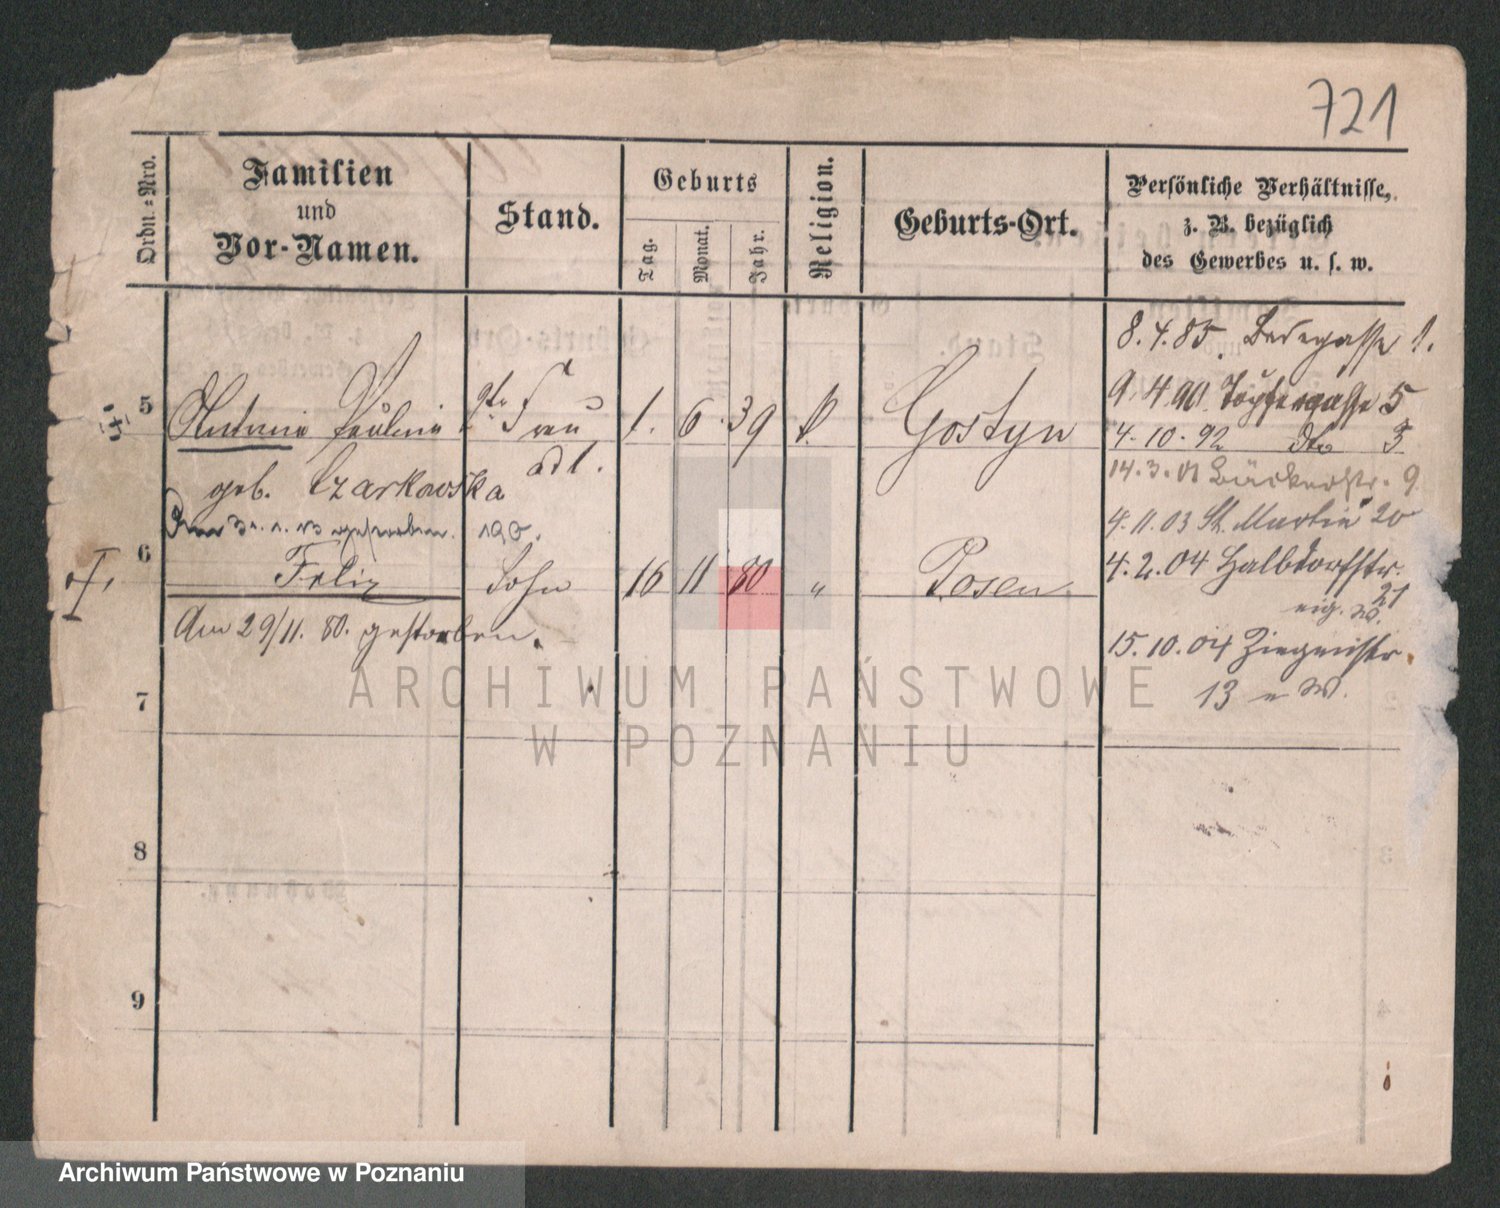 721
Ordn.=Nro.
Familien
und
Vor-Namen.
Stand.
Geburts
Tag.
Monat.
Jahr.
Religion.
Geburts-Ort.
Persönliche Verhältnisse,
z. B. bezüglich
des Gewerbes u. s. w.
8.4.85.
5
Antonie Pauline
Frau
1. 6. 39
Gostyn
9.4.90. Töpfergasse 5
4.10.92 dto 3
geb. Czarkowska
14.3. Bäckerstr. 9
gestorben.
4.11.03 St. Martin 20
6
Felix
Sohn
16 11 80
"
Posen
4.2.04 Halbdorfstr.
21
eig. W.
Am 29/11. 80. gestorben.
15.10.04
13 W.
7
8
9
ARCHIWUM PAŃSTWOWE
W POZNANIU
Archiwum Państwowe w Poznaniu